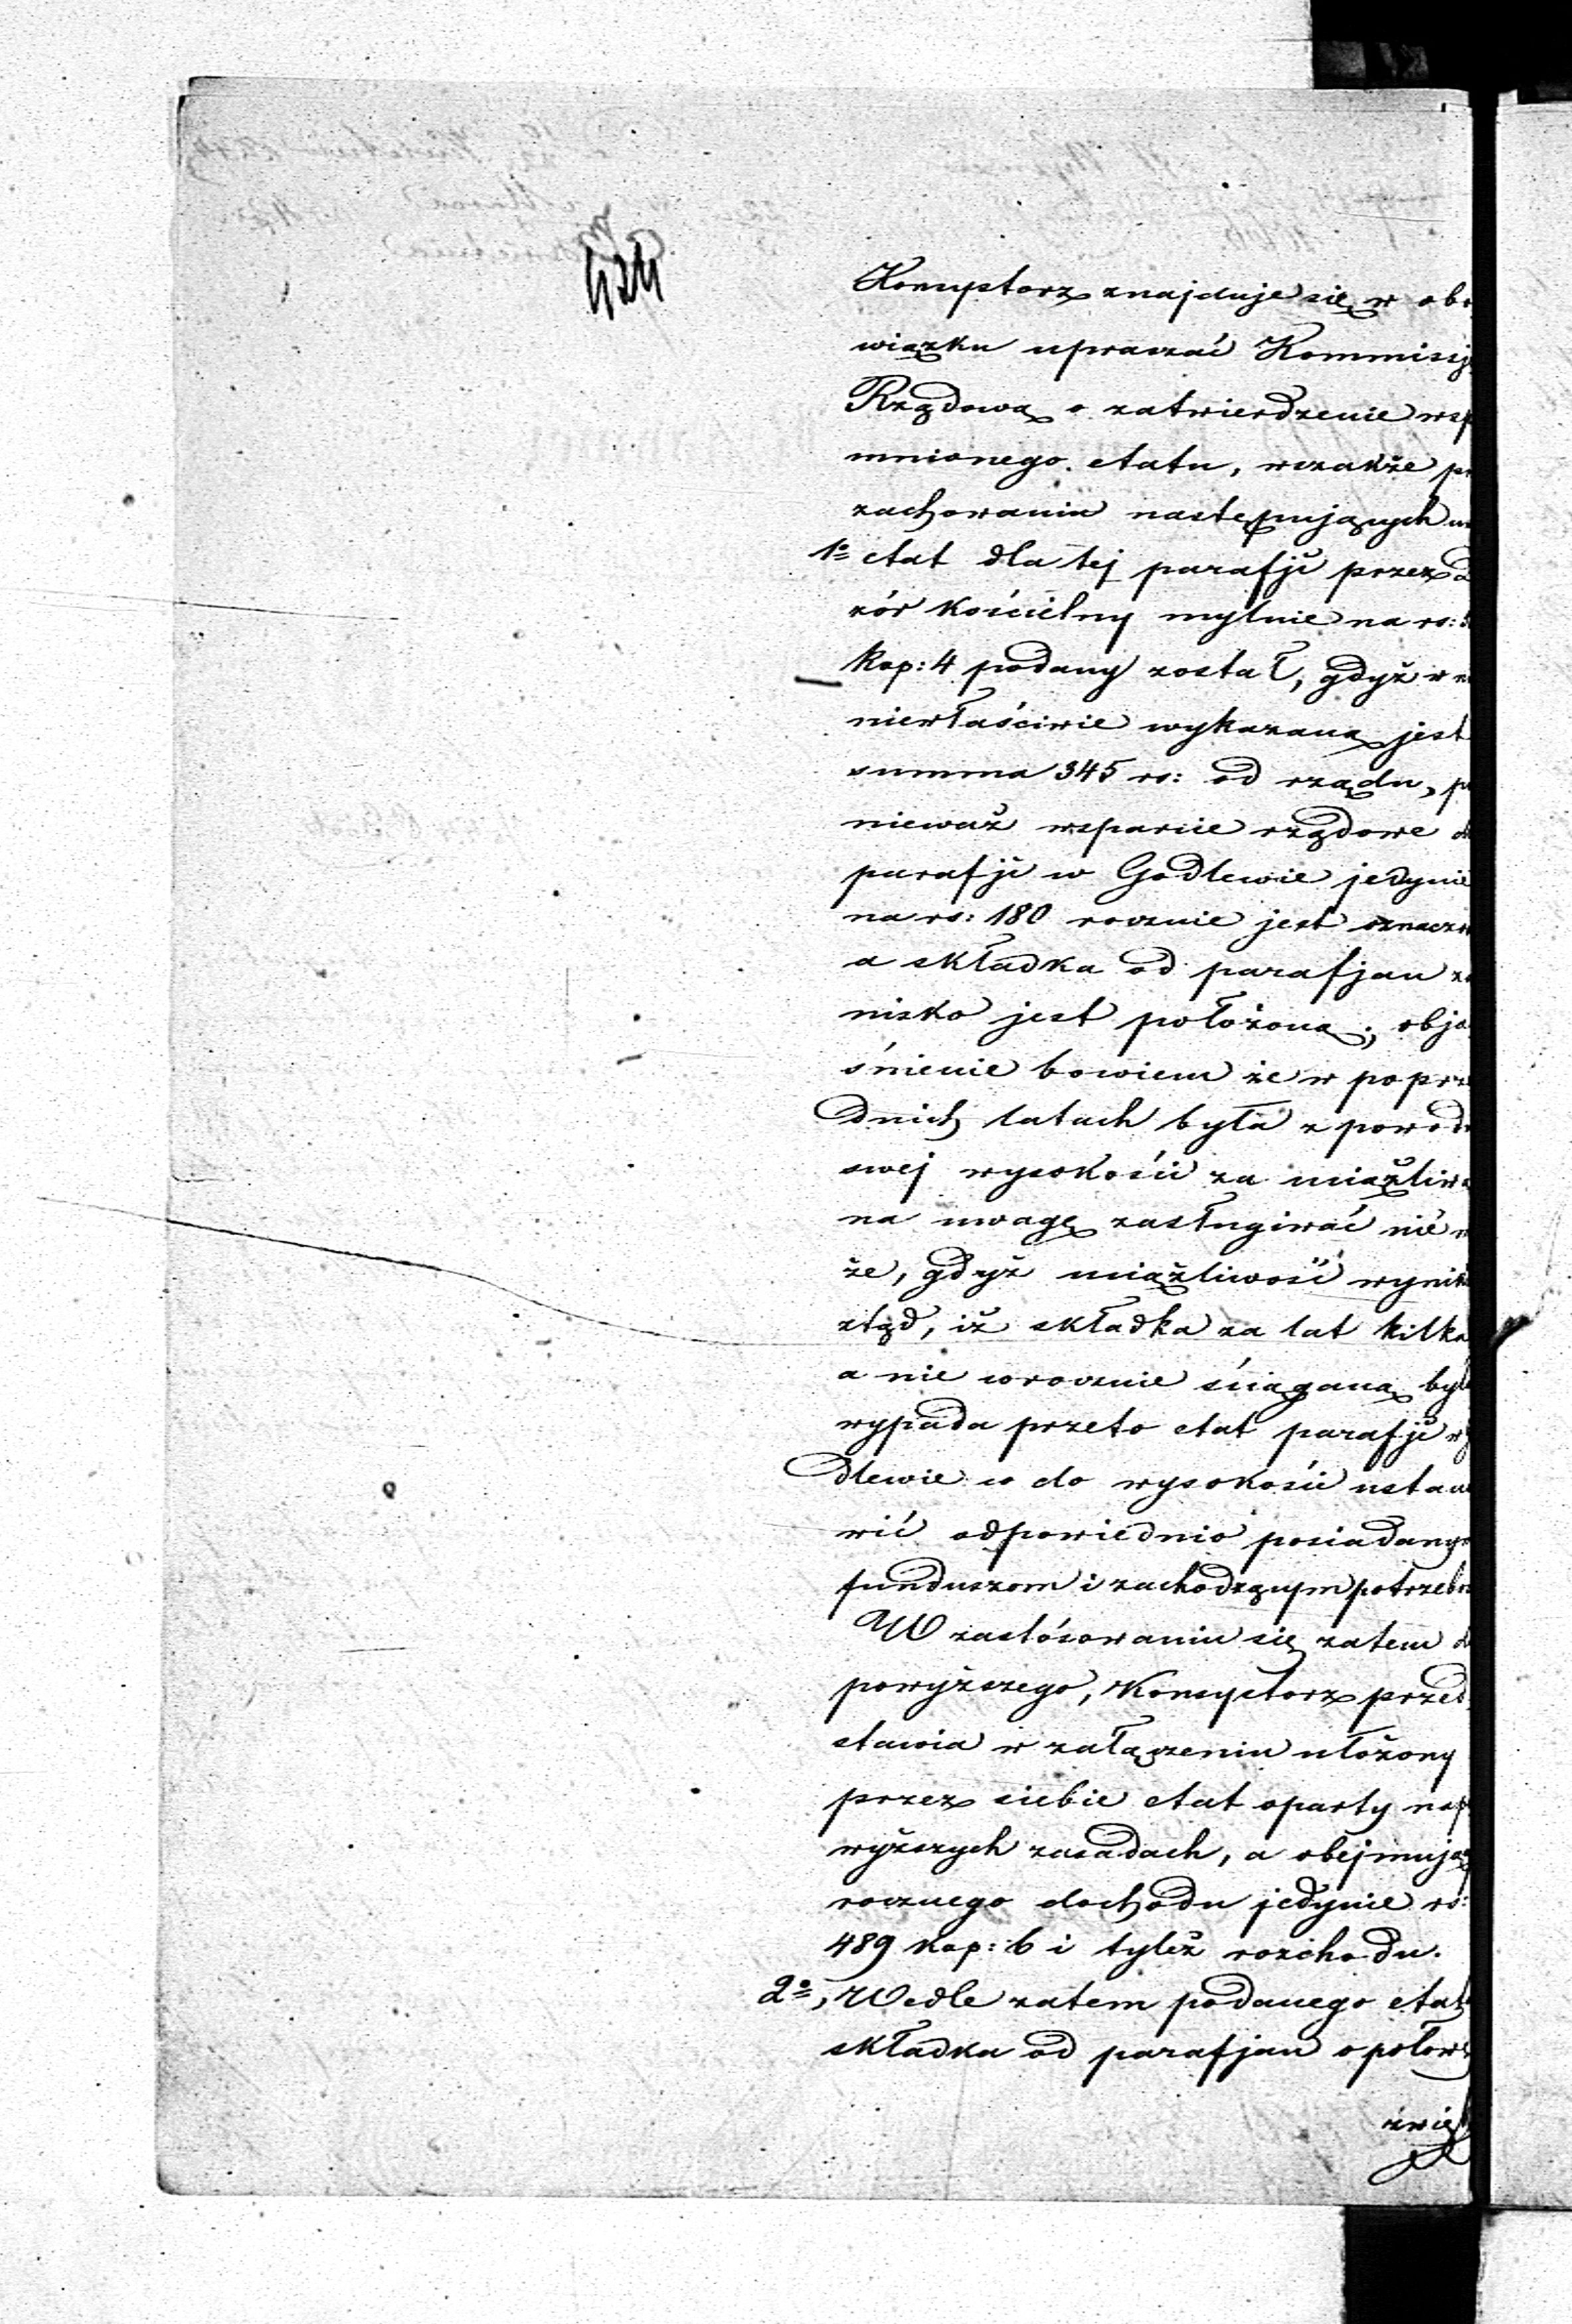 424
Konsystorz znajduje się w obo
wiązku upraszać Kommissję
Rządową o zatwierdzenie wsp
mnionego etatu, wszakże po
zachowaniu następujących
1o etat dla tej parafji przez
zór Kościelny mylnie na rs:
Kop: 4 podany został, gdyż w
niewłaściwie wykazaną jest
summa 345 rs: od rządu, po
nieważ wsparcie rządowe d
parafji w Godlewie jedynie
na rs: 180 rocznie jest oznaczo
a składka od parafjan za
nisko jest położona; obja
śnienie bowiem że w poprze
dnich latach była z powodu
swej wysokości za uciążliwą
na uwagę zasługiwać nie m
że, gdyż uciążliwość wynik
ztąd, iż składka za lat kilka
a nie corocznie ściąganą była
wypada przeto etat parafji w
dlewie co do wysokości ustano
wić odpowiednio posiadanym
funduszom i zachodzącym potrzebo
W zastósowaniu się zatem d
powyższego, Konsystorz przed
stawia w załączeniu ułożony
przez siebie etat oparty na p
wyższych zasadach, a obejmując
rocznego dochodu jedynie rs:
489 kop: 6 i tyleż rozchodu.
2o, Wedle zatem podanego etatu
składka od parafjan o połowę
zwięk